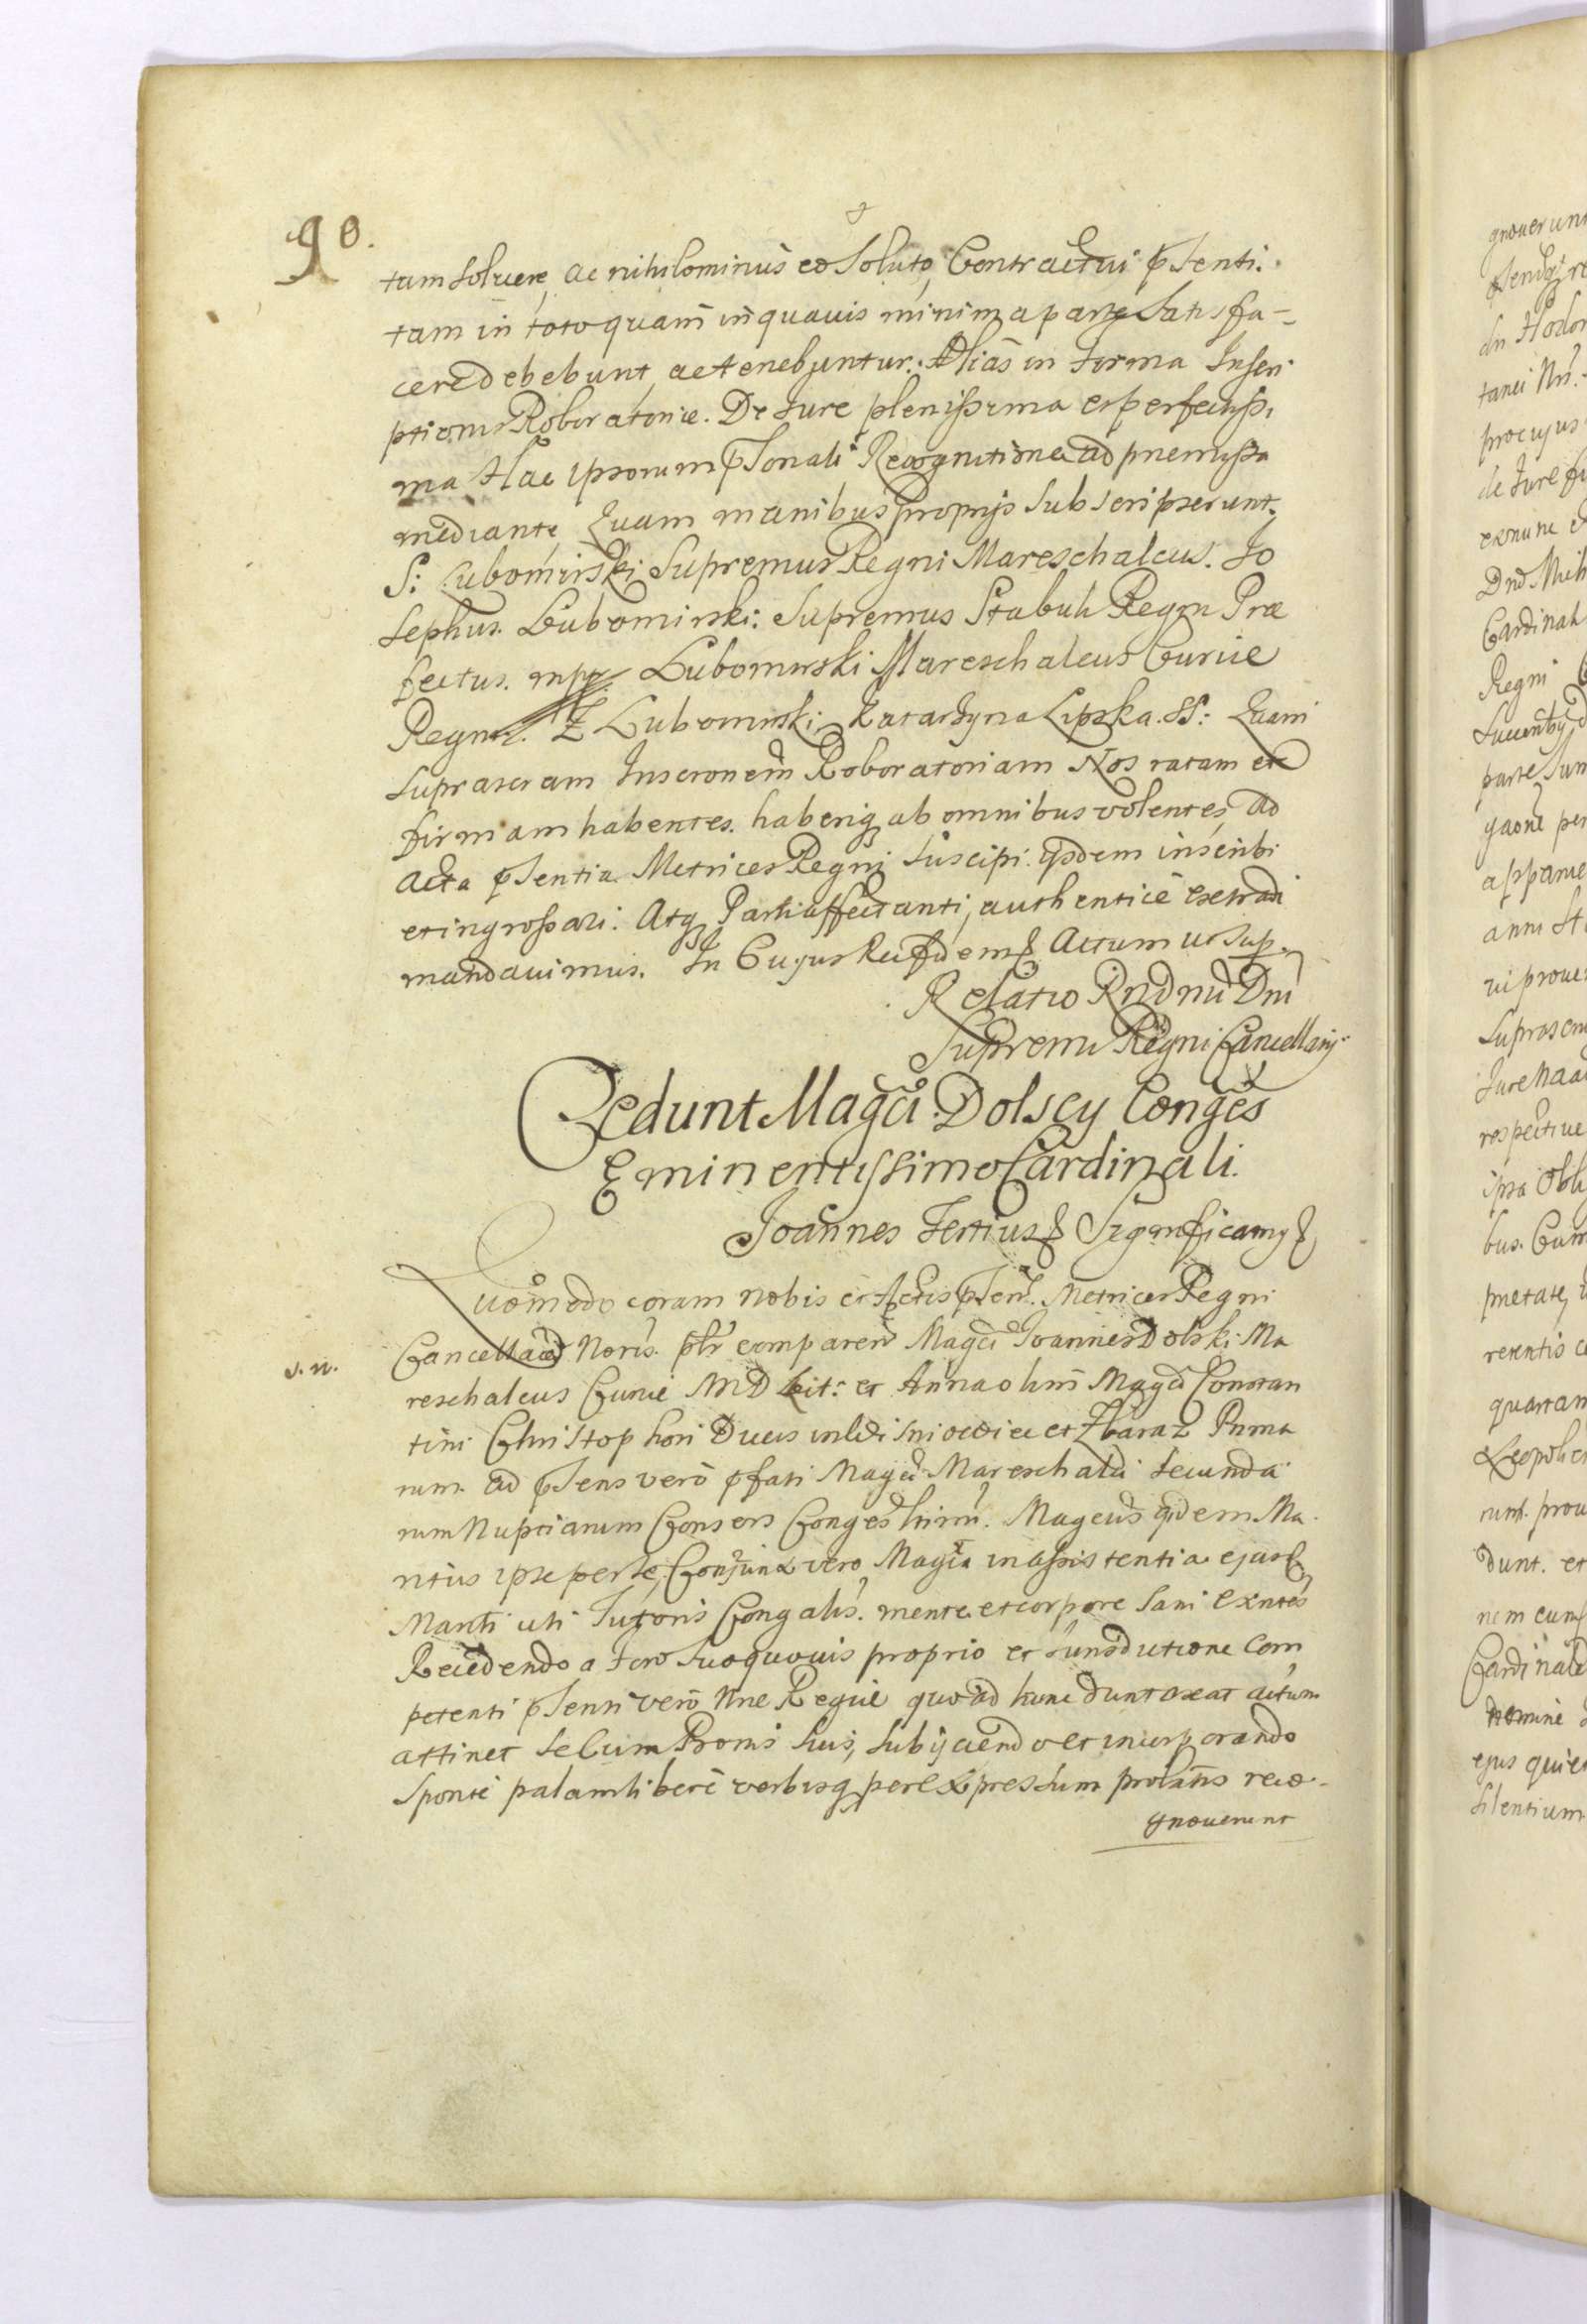 90.
tam solvere, ac nihilominus eo Soluto, Contractui pSenti.
tam in toto quam in quavis minima parte Satisfa-
cere debebunt, ac tenebuntur. Alias in forma Inscri
ptionis Roboratoriæ. De Jure plenissima et perfectissi
ma Hac ipsorum pSonali Recognitione ad præmissa
mediante, Quam manibus proprijs Subscripserunt.
S: Lubomirski Supremus Regni Mareschalcus. Jo
sephus. Lubomirski: Supremus Stabuli Regni Præ
fectus. mpp Lubomirski Mareschalcus Curiæ
Regni. Z Lubomirski. Katarzyna Lipska. SS: Quam
suprascram Inscronem Roboratoriam Nos ratam et
firmam habentes. haberiq ab omnibus volentes, ad
Acta pSentia Metrices Regni suscipi. ijsdem inscribi
et ingrossari: Atq Parti affectanti, authentice extradi
mandavimus. In Cujus Rei fidem & Actum ut sup.
Relatio Rndmi Dni
Supremi Regni Cancellarij
Cedunt Magci Dolscy Conges
Eminentissimo Cardinali.
Joannes Tertius & Significamq &
Quomodo coram nobis et Actis pSent. Metrices Regni
s. n.
Cancellariæ Noris. plr comparen Magci Joannes Dolski Ma
reschalcus Curiæ MD Lit: et Anna olim Magci Constan
tini Christophori Ducis in Wisniowiec et Zbaraz Prima
rum. ad pSens vero pfati Magci Mareschalci secunda
rum Nuptiarum Consors Conges Inimi. Magcus qdem Ma
ritus ipse per se, Conjunx vero Magca in assistentia ejusd
Mariti uti Tutoris Congalis. mente et corpore sani exntes
Recedendo a foro suo quovis proprio et Jurisdictione Com
petenti pSenti vero Nræ Regiæ quo ad hunc duntaxat actum
attinet se cum Bronis suis, subijciendo et incorporando
Sponte palam libere verbisq per expressum prolatis reco-
gnoverunt